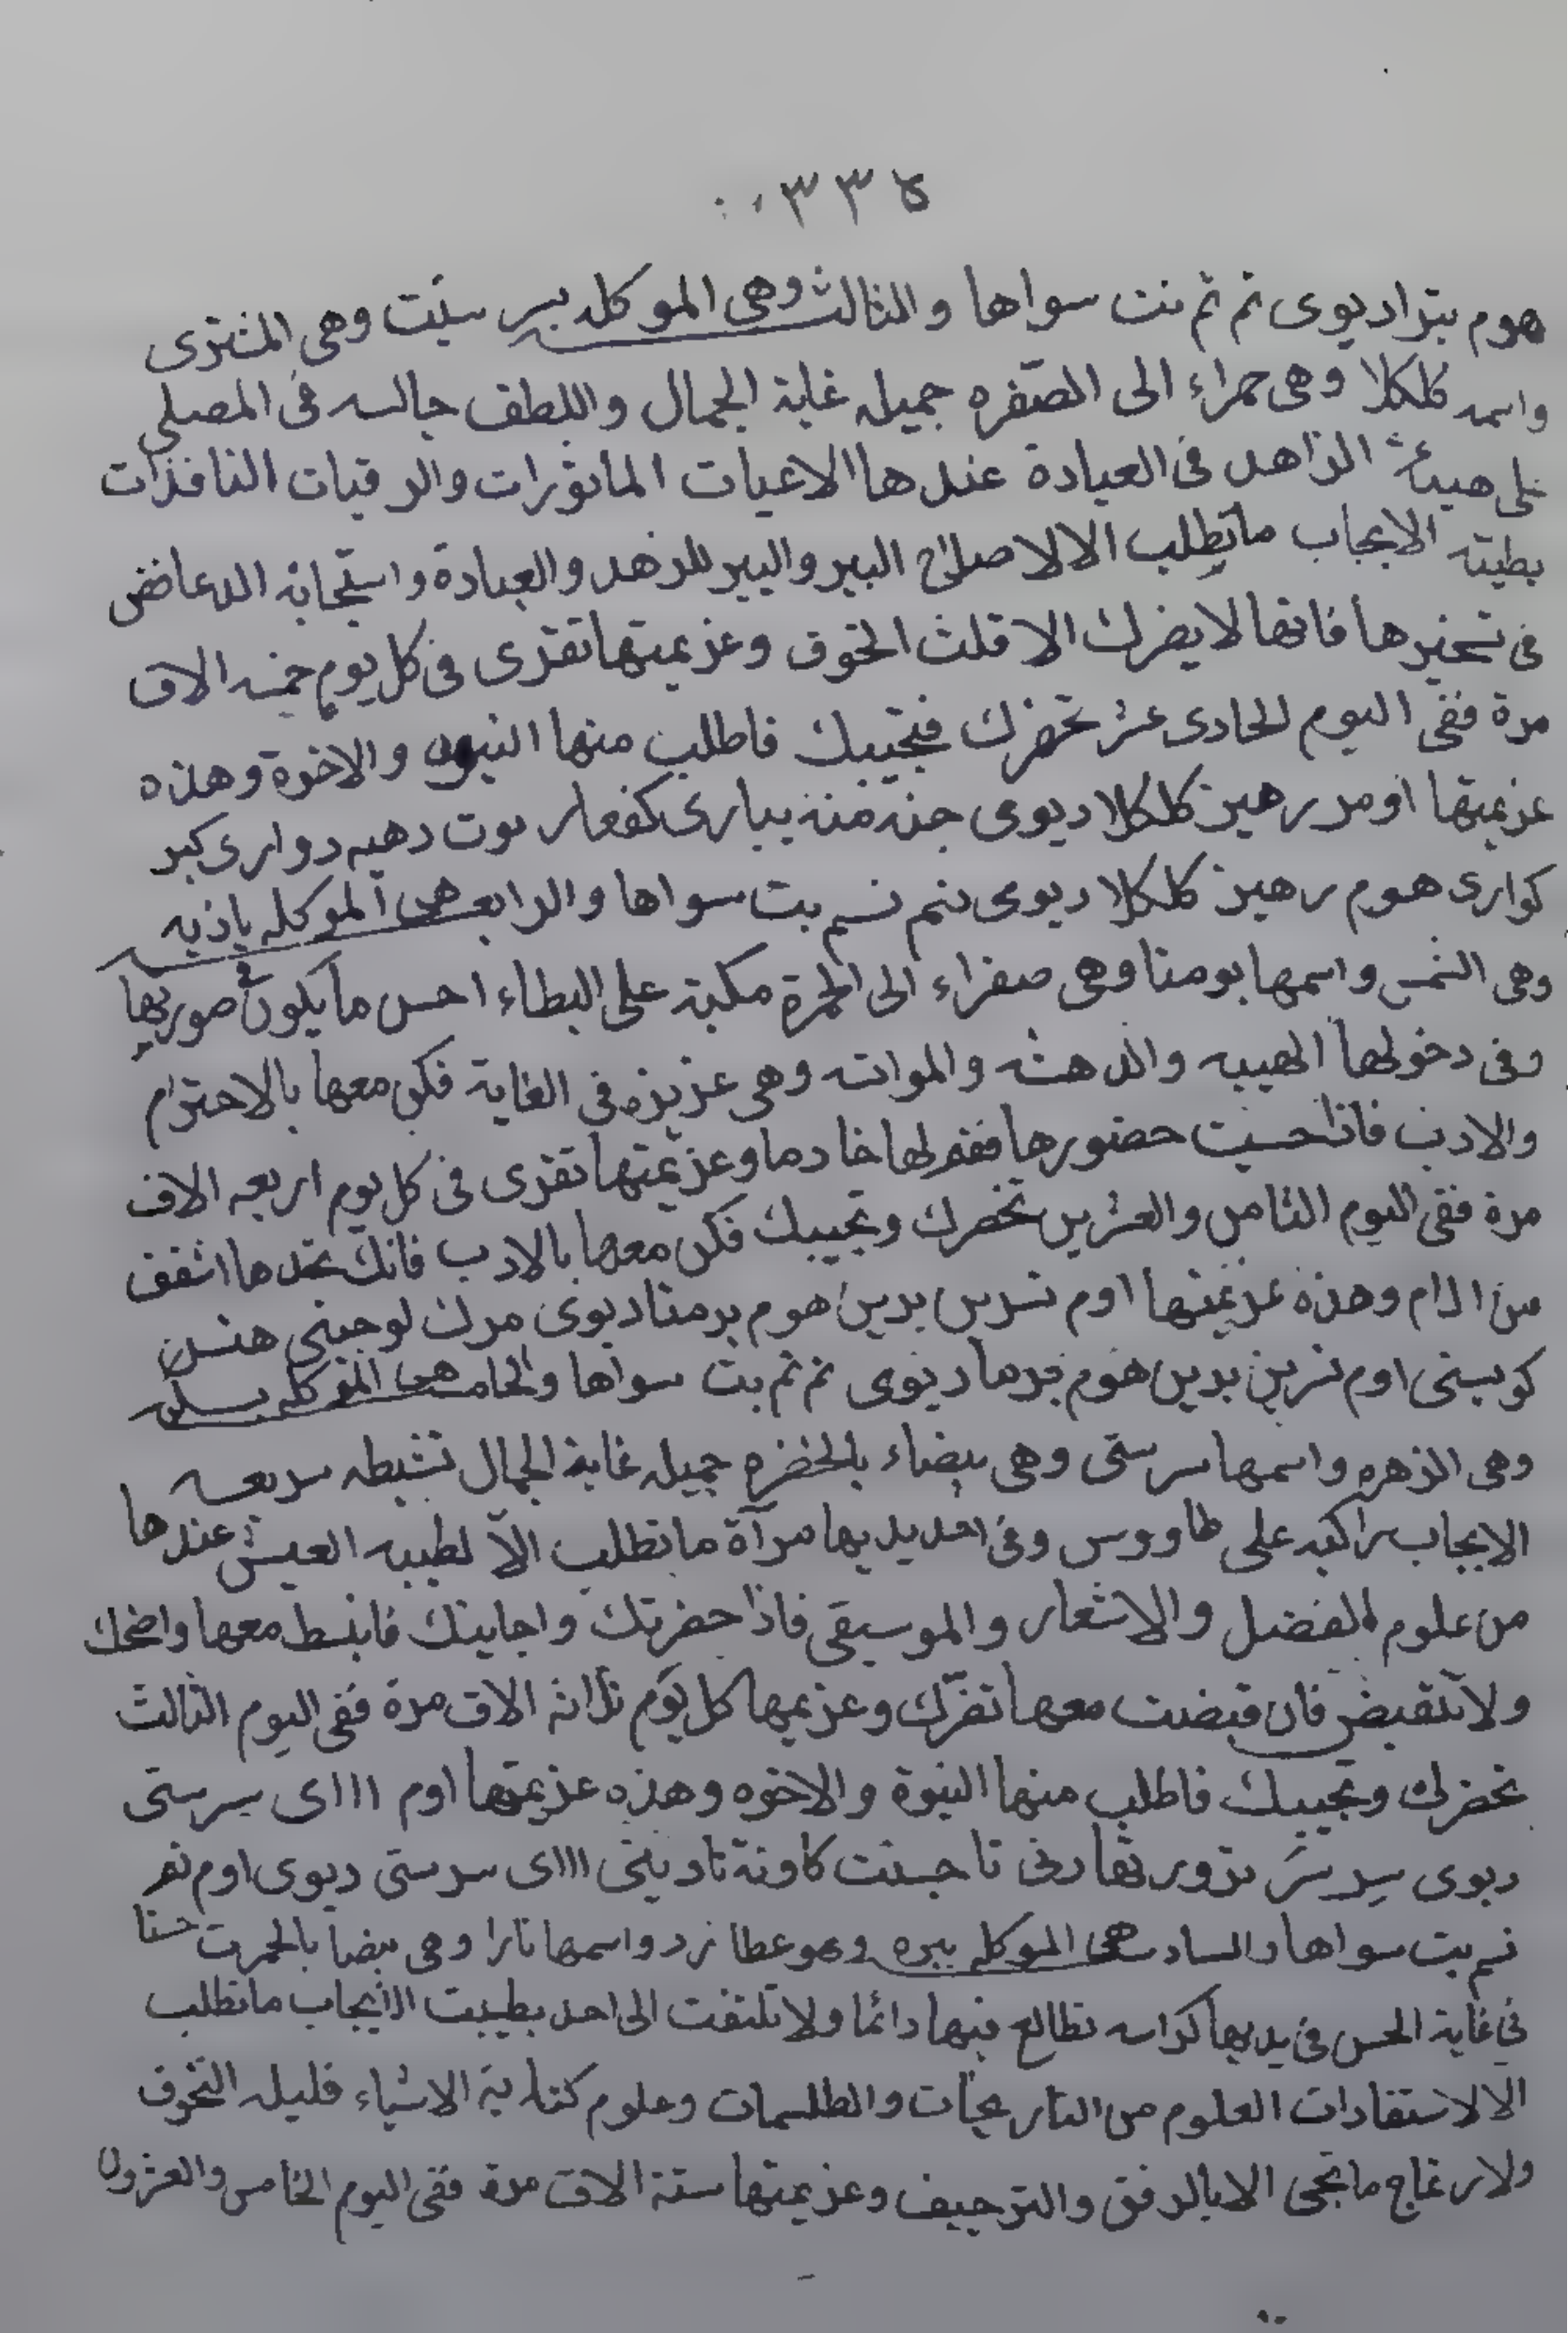 ٣٣٥
هوم بترا ديوى نم ثم نت سواها والثالث وهى الموكله ببر سبت وهى المشترى
واسمه كلكلا وهى حمراء الى الصّفره جميله غاية الجمال واللطف جالسه فى المصلى
على هيئة الزاهد فى العبادة عندها الاعيات الماثورات والرقيات النافذات
بطيئه الايجاب ما تطلب الا لاصلاح البير والبير للزهد والعبادة واستجابة الدعا
فى تسخيرها فانها لا يضرك الا قلت الخوف وعزيمتها تقرى فى كل يوم خمسه الاف
مرة ففى اليوم الحادى عشر تحضرك فتجيبك فاطلب منها والاخوة وهذه
عزيمتها اوم رهين كلكلا ديوى جنه منه بيارى بوت دهيه دوارى كبر
كوارى هوم رهين كلكلا ديوى نم نسم بت سواها والرابع هى الموكله ياذيه
وهى الشمس واسمها بومنا وهى صفراء الى الحمرة مكبة على البطاء احسن ما يكون فى صورتها
وفى دخولها الهيبه والدهشه والموانه وهى عزيزه فى الغاية فكن معها بالاحترام
والادب فاذا حسيت حضورها فقم لها خادما وعزيمتها تقرى فى كل يوم اربعه الاف
مرة ففى اليوم الثامن والعشرين تحضرك وتجيبك فكن معها بالادب فانك تجدها اشفق
من الام وهذه عزيمتها اوم نسرين بدين هوم برمنا ديوى مرك لوجينى هنسن
كوبسنى اوم نسرين بدين هوم برمها ديوى نم ثم بت سواها والخامسه هى الموكله
وهى الزهره واسمها سرستى وهى بيضاء بالخضره جميله غاية الجمال نشيطه سريعه
الايجاب راكبه على طاووس وفى احد يديها مرآة ما تطلب الاّ لطيبه العيش عندها
من علوم الفضل والاشعار والموسيقى فاذا حضرتك واجابتك فانبسط معها واضحك
ولا تنقبض فان قبضت معها تضرّك وعزيمها كل يوم ثلاثه الاف مرة ففى اليوم الثالث
تحضرك وتجيبك فاطلب منها البنوة والاخوه وهذه عزيمتها اوم اااى سرستى
ديوى سرستى بدور بهارنى تا جسنت كاونة نادينى اااى سرستى ديوى اوم نم
نسم بت سواها والسادسه هى الموكله ببره وهو عطارد واسمها تارا وهى بيضا بالحمرت حسنا
فى غاية الحسن فى يديها كراسه تطالع فيها دائما ولا تلتفت الى احد بطيبت الايجاب ما تطلب
الا لاستفادات العلوم من النارنجيات والطلسمات وعلوم كتابية الاشياء قليله التخوف
ولا رغاج ما تجى الا بالرفق والترجيف وعزيمتها ستة الاف مرة ففى اليوم الخامس والعشرون